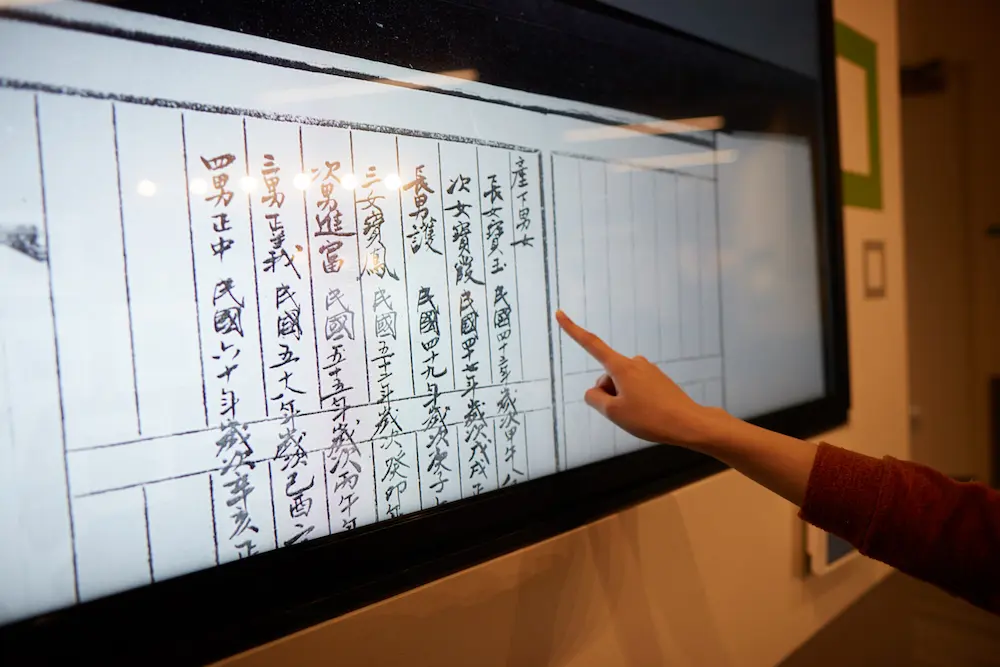 產下男女
長女寶玉 民國四十三年歲次甲午
次女寶霞 民國四十七年歲次戊戌正
長男護 民國四十九年歲次庚子
三女寶鳳 民國五十二年歲次癸卯年
次男進富 民國五十五年歲次丙午年
三男正義 民國五十八年歲己酉
四男正中 民國六十年歲次辛亥正